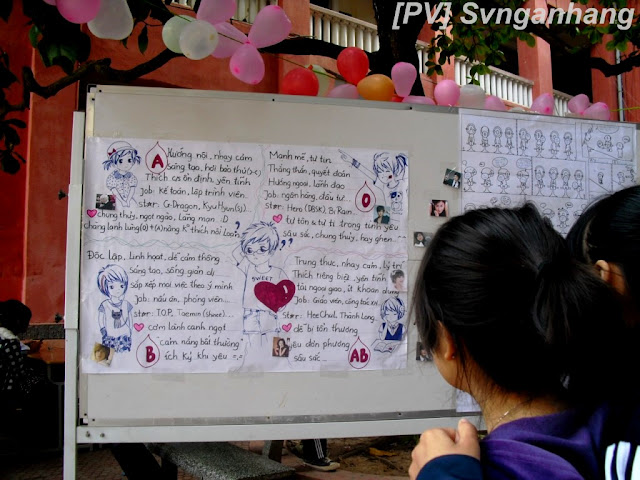 [PV] Svnganhang
A
Hướng nội, nhạy cảm
sáng tạo, hơi bảo thủ(>.<)
Thích cs ổn định, yên tĩnh
Job: Kế toán, lập trình viên.
star: G-Dragon, KyuHyun(SJ)
chung thủy, ngọt ngào, lãng mạn :D
chàng lạnh lùng(0)+(A)nắng thích nói
Mạnh mẽ, tự tin
Thẳng thắn, quyết đoán
Hướng ngoại, lãnh đạo
Job: ngân hàng, đầu tư
star: Hero (DBSK), Bi Rain
O
tự tôn & tự ti trong tình yêu
sâu sắc, chung thủy, hay ghen
Độc lập, linh hoạt, dễ cảm thông
sáng tạo, sống giản dị
sắp xếp mọi việc theo ý mình
Job: nấu ăn, phóng viên...
star: T.O.P, Taemin (Shinee)...
cảm lành canh ngọt
"cẩm nang bất thường"
B
ích kỷ khi yêu =.=
SWEET
Trung thực, nhạy cảm, lý trí
Thích riêng biệt, yên tĩnh
tài ngoại giao, ít khoan dung
Job: Giáo viên, công tác
star: HeeChul, Thành Long
dễ bị tổn thương
yêu đơn phương
sâu sắc...
AB